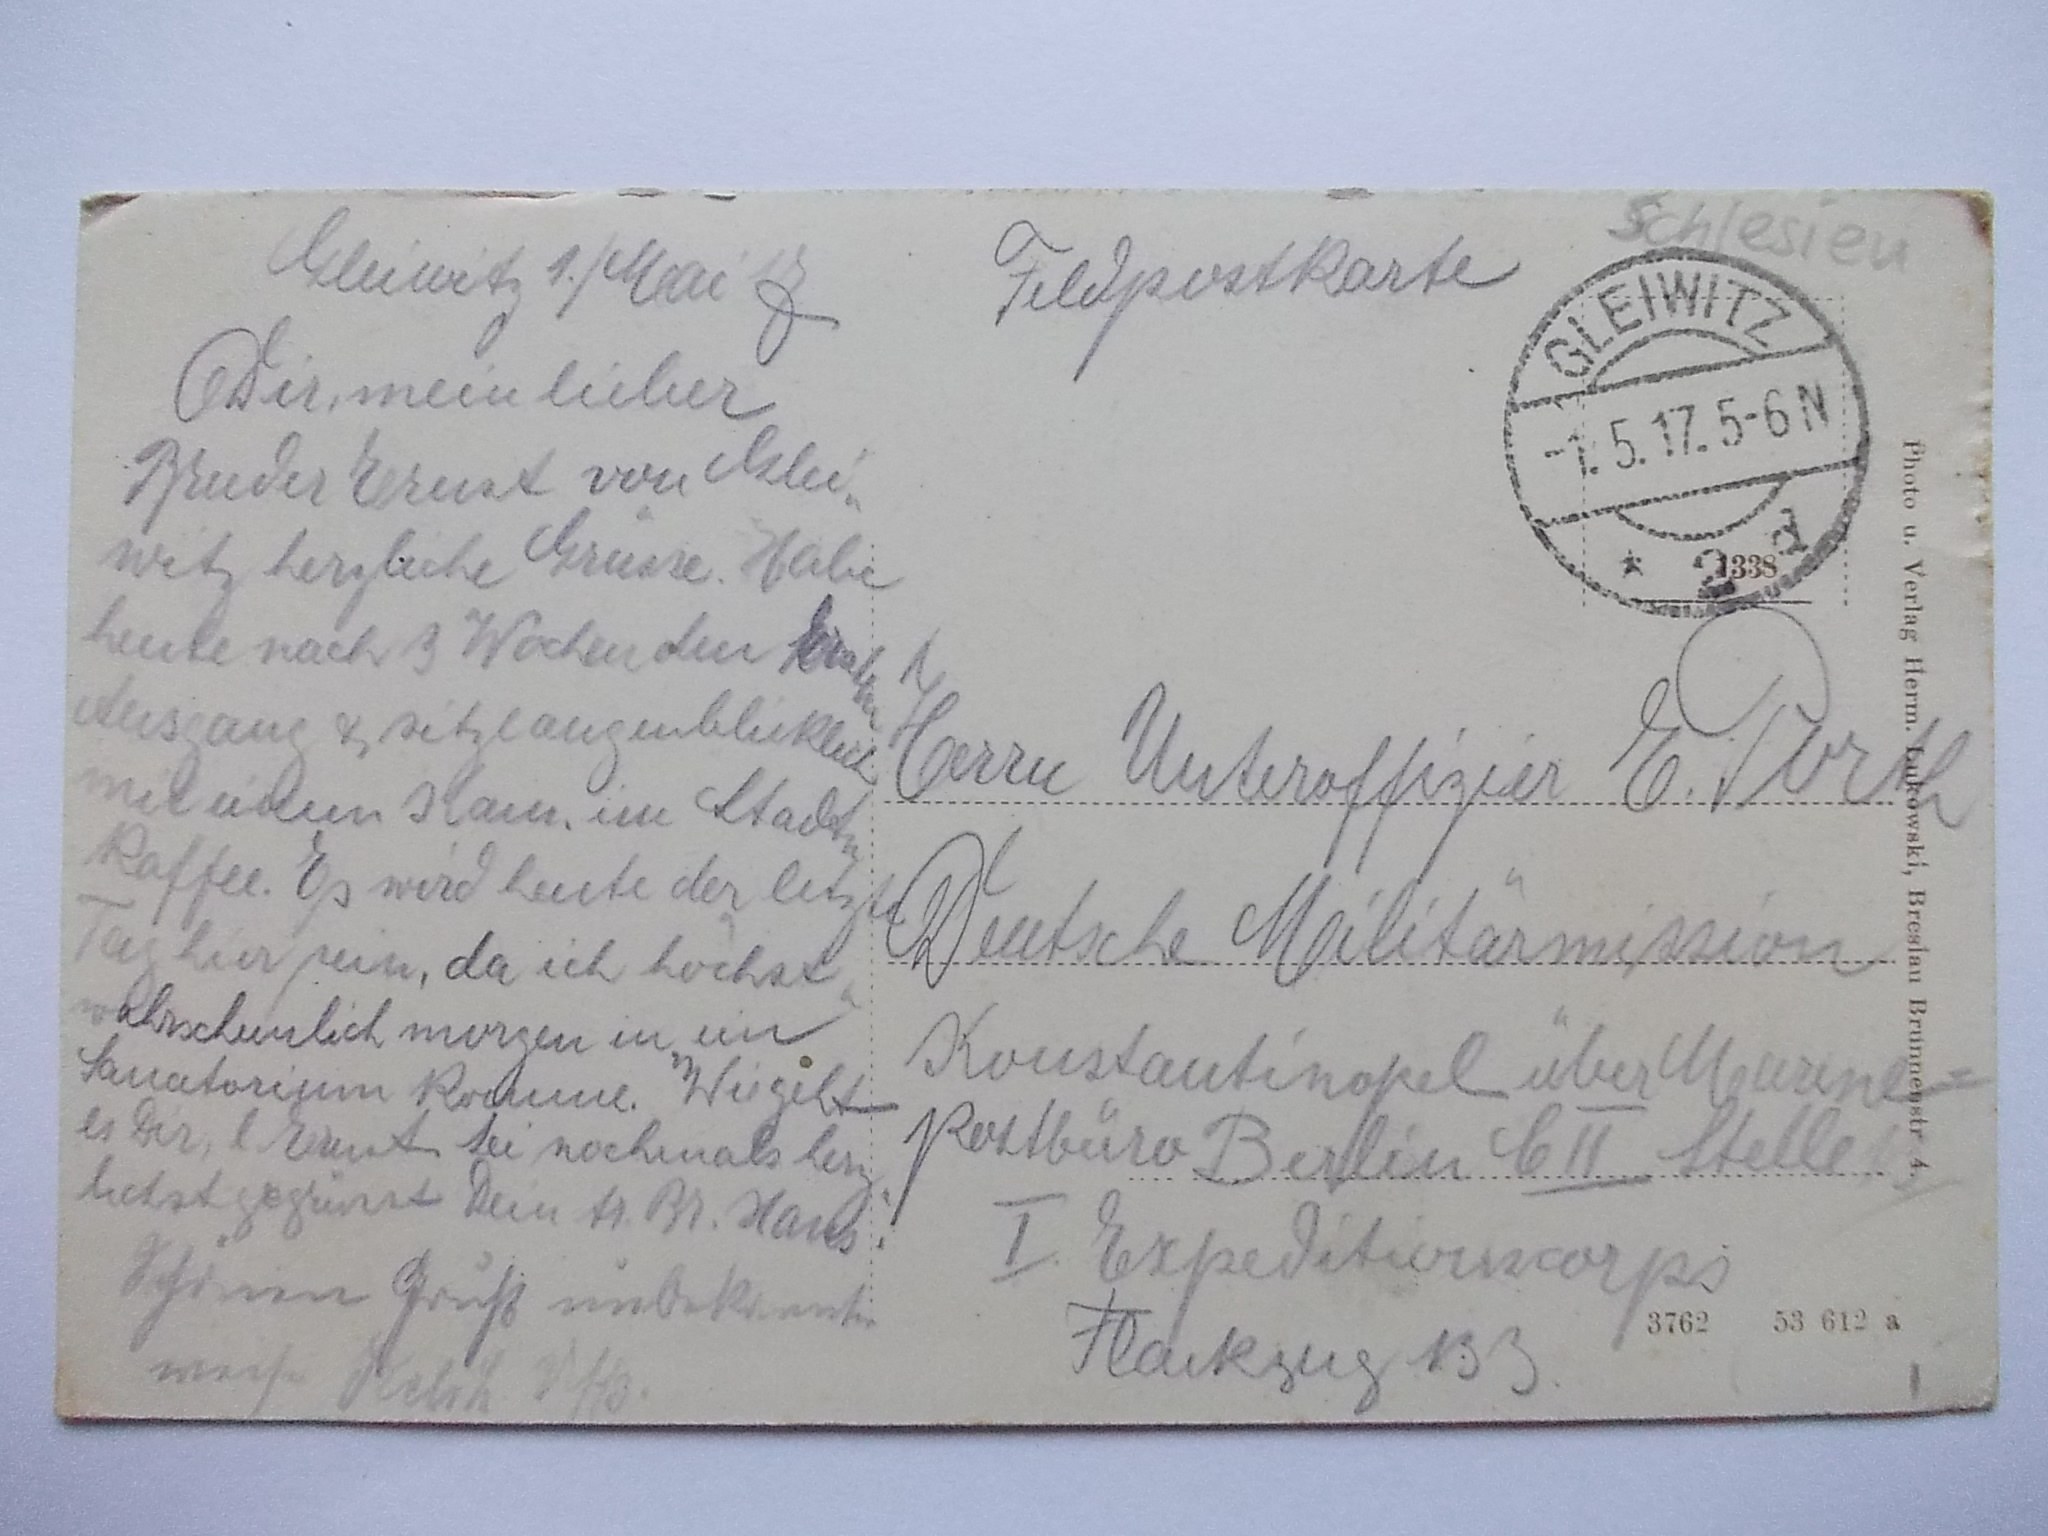 Gleiwitz 1./Mai 17
Dir, mein lieber
Bruder Ernst von Glei„
witz herzliche Grüsse. Habe
heute nach 3 Wochen den
Ausgang & sitze augenblicklich
mit einem Kam. im Stadt„
Kaffee. Es wird heute der letzte
Tag hier sein, da ich höchst„
wahrscheinlich morgen in ein
Sanatorium komme. Wie geht
es Dir, l. Ernst sei nochmals herz„
lichst gegrüsst Dein tr. Br. Hans
Schönen Gruß unbekannter
weise
Feldpostkarte
Schlesien
GLEIWITZ
-1.5.17.5-6N
* 2 d
1338
Herrn Unteroffizier E.
Deutsche Militärmission
Konstantinopel über Marine=
postbüro Berlin C II Stelle
I. Expeditionscorps
Flackzug 133
3762 53 612 a
Photo u. Verlag Herm. Lukowski, Breslau Brunnenstr. 4.